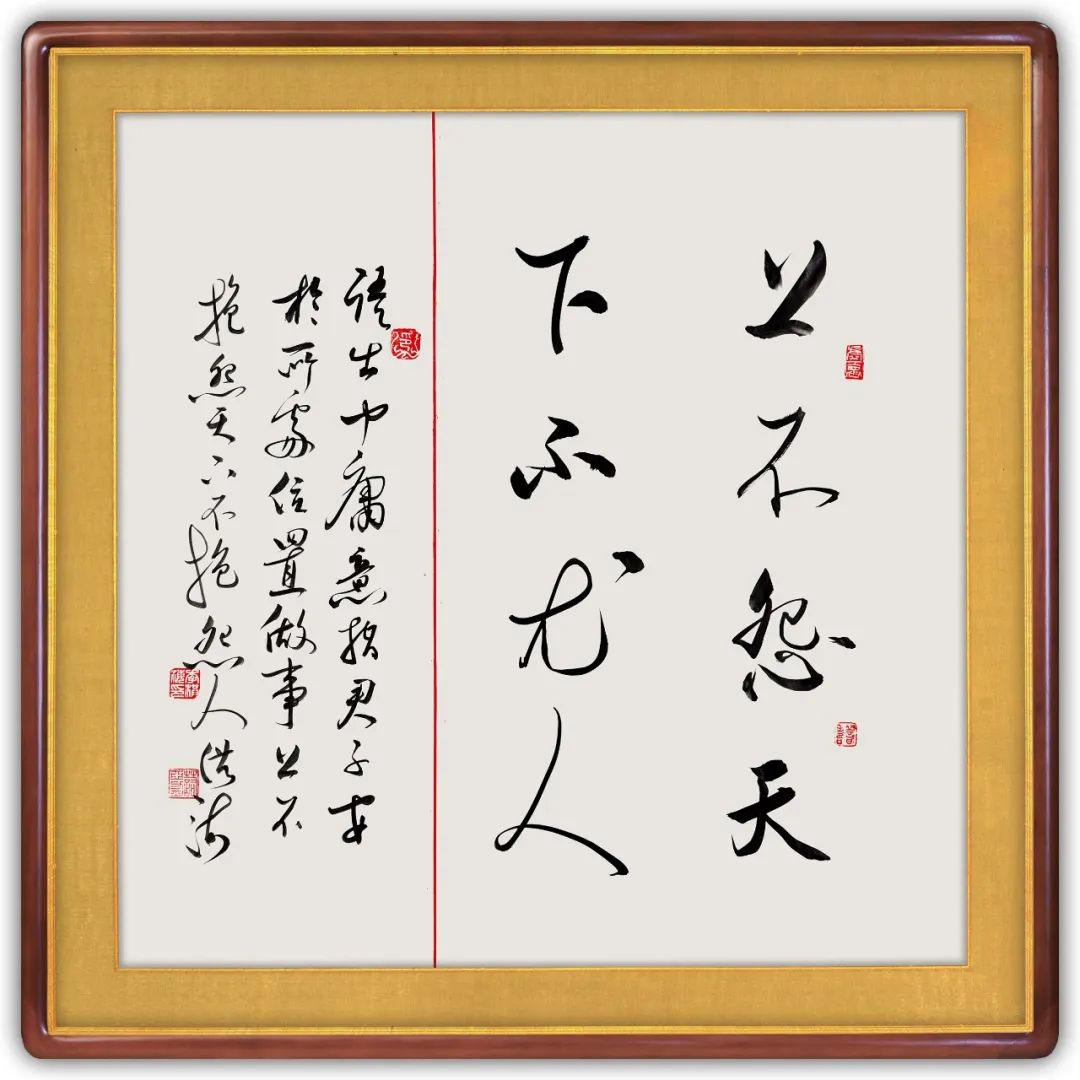 上不怨天
下不尤人
语出中庸意指君子安
於所处位置做事上不
抱怨天下不抱怨人洪海